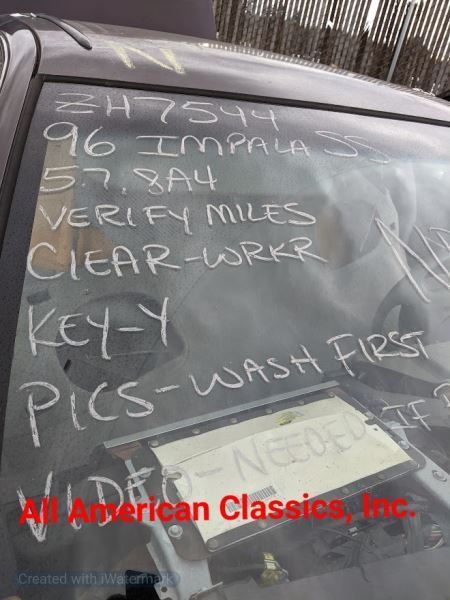 N
ZH7544
96 IMPALA SS
5.7. 8A4
VERIFY MILES
CLEAR-WRKR
KEY-Y
PICS-WASH FIRST
VIDEO-NEEDED IF
All American Classics, Inc.
Created with iWatermark